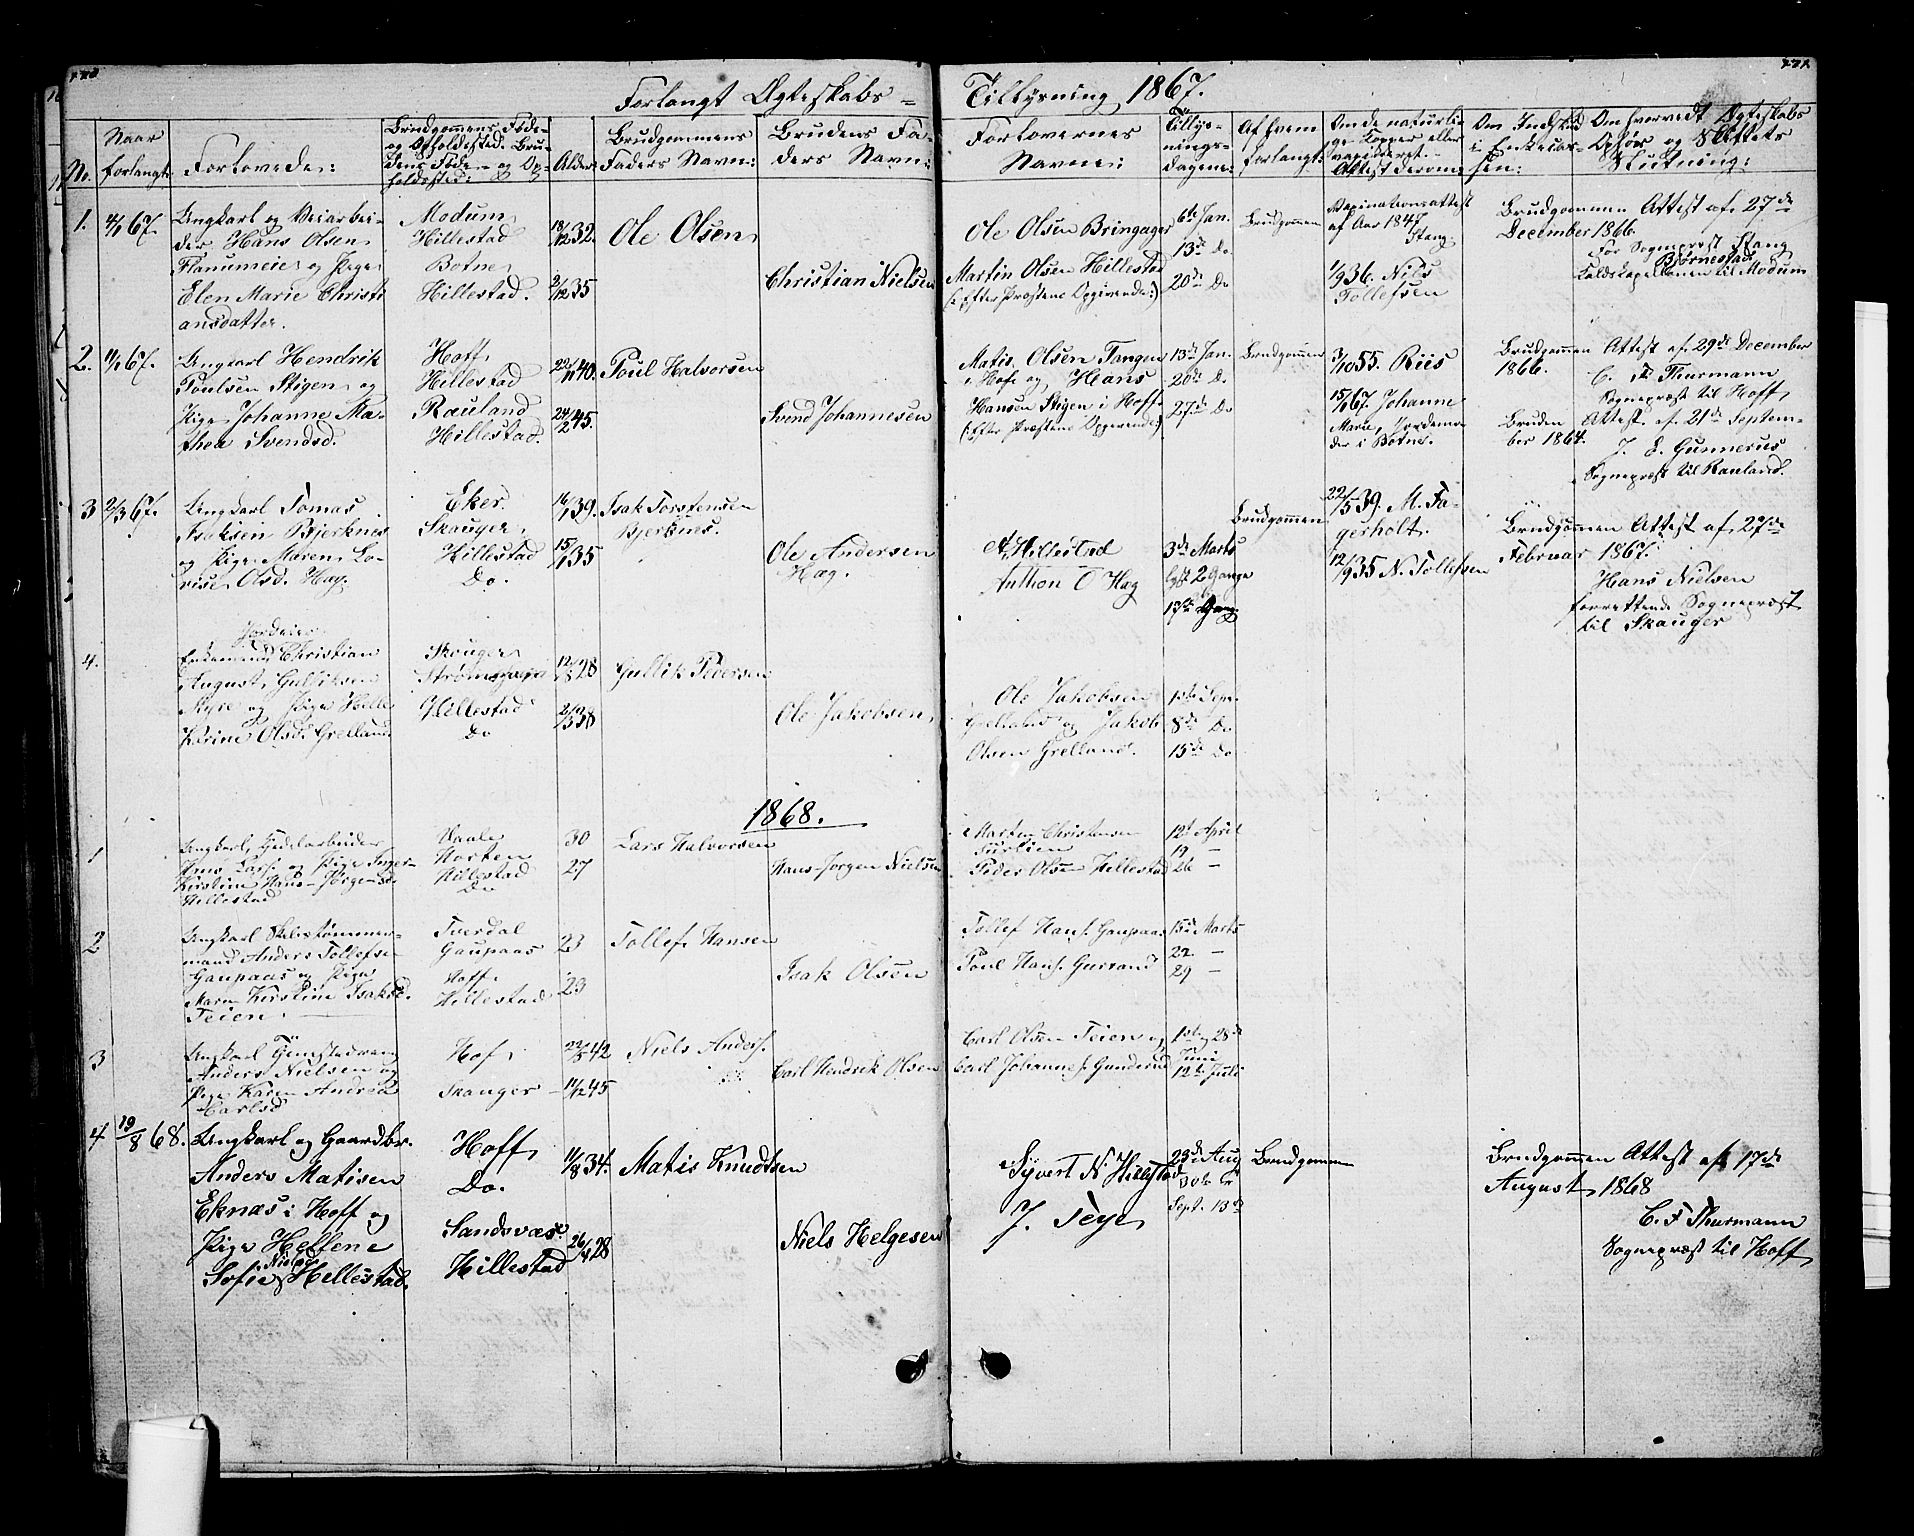 Forlangt Ægteskabs-
Tillysning 1867.
No.
Naar
forlangt:
Forlovede:
Brudgommens Føde-
og Opholdssted. Bru-
dens Føde- og Op-
holdssted:
Alder:
Brudgommens
Faders Navn:
Brudens Fa-
ders Navn:
Forlovernes
Navne:
Tillys-
nings-
dagene:
Af hvem
forlangt:
Om de naturli-
ge Kopper eller
vaccineret.
Attest derom:
Om Indskud
i Enkekas-
sen:
Om forrevedt Ægteskabs
Ophør og Skiftets
Slutning:
1.
4/1 67.
Ungkarl og Veiarbei-
der Hans Olsen
Flanumeie og Pige
Elen Marie Christi
ansdatter.
Modum
Hillestad
Botne
Hillestad.
18/12 32.
2/12 35
Ole Olsen
Christian Nielsen
Ole Olsen Bringager
Martin Olsen Hillestad
(: Efter Præstens Opgivende:)
6te Jan.
13de Do
20de Do
Brudgommen
Vaxinationsattest
af Aar 1847
Stang.
1/9 36. Nils
Tollefsen
Brudgommen Attest af 27de
December 1866.
For Sognepræst Stang
Bjørnestad
Feldskapellanen til Modum
2.
11/1 67.
Ungkarl Hendrik
Poulsen Stigen og
Pige Johanne Ma-
thea Svendsd.
Hoff
Hillestad
Rauland
Hillestad.
22/11 40.
24/2 45
Poul Halvorsen
Svend Johannesen
Matis Olsen Tangen
i Hof og Hans
Hansen Stigen i Hoff
(: Efter Præstens Opgivende:)
13de Jan.
20de D.
27de Do
Brudgommen
3/10 55. Riis
15/1 67. Johanne
Marie, Jordemo-
der i Botne.
Brudgommen Attest af 29de December
1866.
C. F. Thurmann
Sognepræst til Hoff
Bruden Attest af 21de Septem-
ber 1864.
J. E. Gunnerus
Sognepræst til Rauland.
3
2/3 67.
Ungkarl Tomas
Isaksen Bjerknes
og Pige Maren Lo-
vise Olsd. Hag.
Eker.
Skauger
Hillestad
Do.
16/1 39.
15/1 35
Isak Torstensen
Bjerknes.
Ole Andersen
Hæg.
N. Hillestad
Anthon O Hæg
3de Marts
lyst 2 Gange
17de Gang
Brudgommen
22/5 39. M. Fa-
gerholt.
12/9 35 N. Tollefsen
Brudgommen Attest af 27de
Februar 1867.
Hans Nielsen
forrettende Sognepræst
til Skauger
4.
Jordeier
Enkemand Christian
August Gulliksen
Myre og Pige Helle
Karine Olsd. Grelland
Skouger
Strømmen
Hillestad
Do
12/8 28
2/3 38
Gullik Pedersen
Ole Jakobsen
Ole Jakobsen
Grelland og Jakob
Olsen Grelland.
1ste Sept.
8de Do
15de Do
1868.
1
Ungkarl, Hjularbeider
Hans Lars. og Pige Inger
Kirstine Hans-Jørgensd.
Hillestad
Vaale
Horten
Hillestad
Do
30
27
Lars Halvorsen
Hans-Jørgen Nielsen
Morten Christensen
Peder Olsen Hillestad
12t April
19 -
26 -
2
Ungkarl Skibstømmer-
mand Anders Tollefse-
Gaupaas og Pige
Maren Kirstine Isaksd.
Teien.
Tverdal
Gaupaas
Hoff
Hillestad
23
23
Tollef Hansen
Isak Olsen
Tollef Hans. Gaupaas
Poul Hans. Gurrand
15de Marts
22 -
29 -
3
Ungkarl
Anders Nielsen og
Pige Karen Andrea
Carlsd
Hof
Skauger
22/5 42
11/12 45
Niels Anders.
Carl Hendrik Olsen
Carl Olsen Teien og
Carl Johannes. Gunderud
1ste, 28de
Juni
12te Juli
4
19/8 68.
Ungkarl og Gaardbr.
Anders Matisen
Eknæs i Hoff og
Pige Hellene
Sofie Nielsd Hellestad.
Hoff
Do.
Sandsvær
Hillestad
11/8 34.
26/4 28
Matis Knudtsen
Niels Helgesen
Syvert N Hillestad
J. Teye
23de Aug
30te
Sept. 13de
Brudgommen
Brudgommen Attest af 17de
August 1868
C. F Thurmann
Sognepræst til Hoff